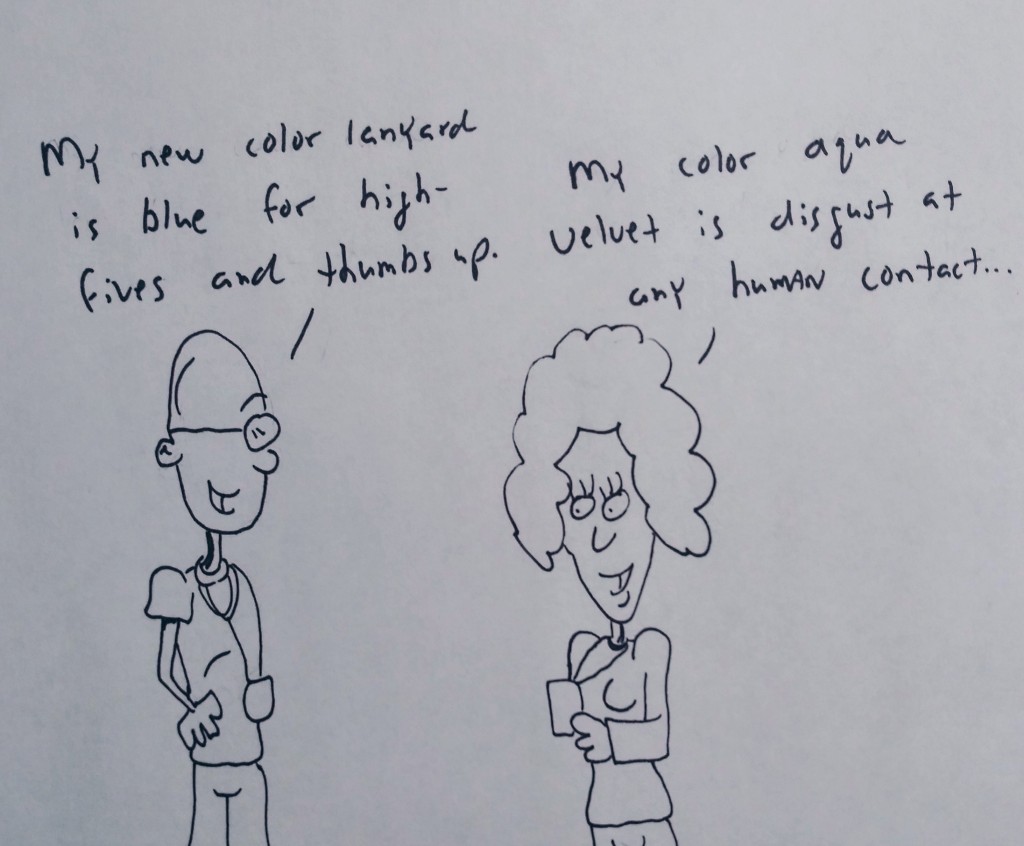 My new color lanyard
is blue for high-
fives and thumbs up.
My color aqua
velvet is disgust at
any human contact...